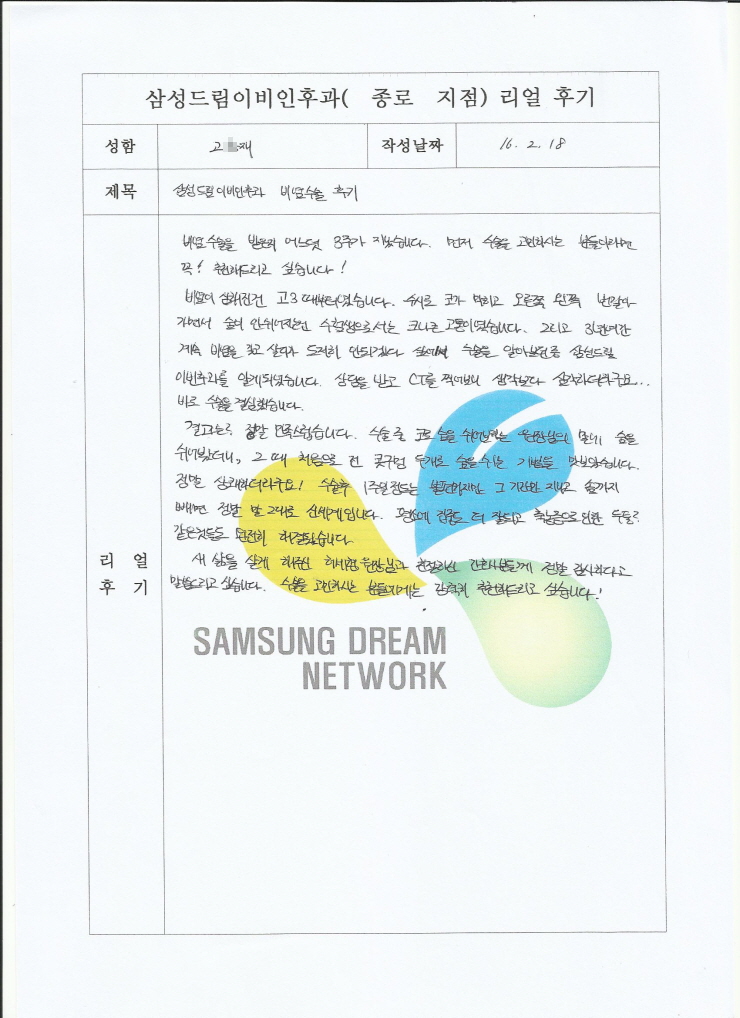 삼성드림이비인후과( 종로 지점) 리얼 후기
성함 고 재 작성날짜 16. 2. 18
제목 삼성드림이비인후과 비염수술 후기
비염수술을 받은지 어느덧 3주가 지났습니다. 먼저 수술을 고민하시는 분들이라면
꼭! 추천해드리고 싶습니다!
비염이 심해진건 고3 때부터였습니다. 수시로 코가 막히고 오른쪽 왼쪽 번갈아
가면서 숨이 안쉬어지는건 수험생으로서는 크나큰 고통이었습니다. 그리고
계속 비염을 갖고 살다가 도저히 안되겠다 싶어서 수술을 알아보던중 삼성드림
이비인후과를 알게되었습니다. 상담을 받고 CT를 찍어보니 생각보다 심각하더라구요...
바로 수술을 결심했습니다.
결과는? 정말 만족스럽습니다. 수술 후 코로 숨을 쉬어보라는 원장님의 말에 숨을
쉬어봤더니, 그 때 처음으로 전 콧구멍 두개로 숨을 쉬는 기분을 맛보았습니다.
정말 상쾌하더라구요! 수술후 1주일정도는 불편하지만 그 기간만 지나고 솜까지
빼면 정말 말 그대로 신세계입니다. 집중도 더 잘되고 축농증으로 인한 두통
같은것들도 완전히 해결됐습니다.
리 얼
후 기
새 삶을 살게 해주신 원장님과 친절하신 간호사분들께 정말 감사하다고
말씀드리고 싶습니다. 수술을 고민하시는 분들에게는 강력히 추천해드리고 싶습니다!
SAMSUNG DREAM
NETWORK